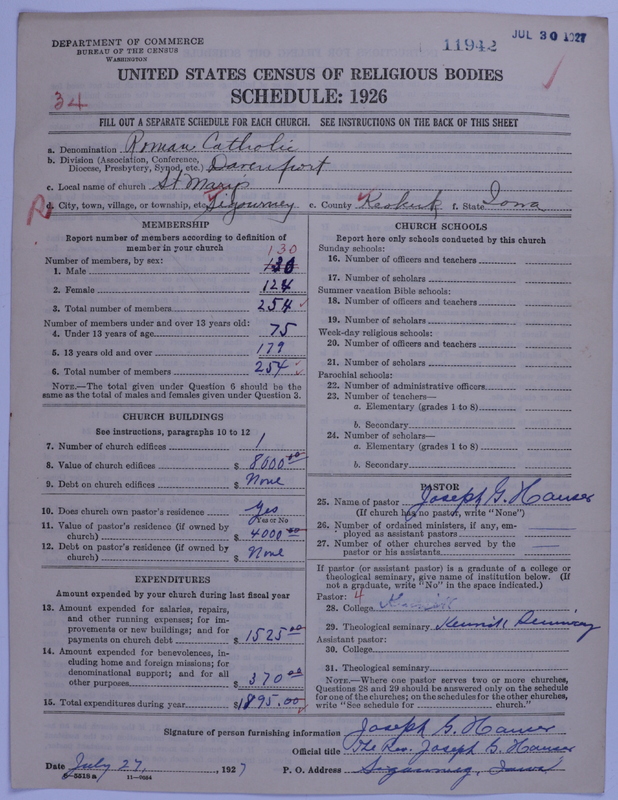 DEPARTMENT OF COMMERCE
BUREAU OF THE CENSUS
WASHINGTON
11942
JUL 30 1927
UNITED STATES CENSUS OF RELIGIOUS BODIES
SCHEDULE: 1926
34
FILL OUT A SEPARATE SCHEDULE FOR EACH CHURCH. SEE INSTRUCTIONS ON THE BACK OF THIS SHEET
a. Denomination Roman Catholic
b. Division (Association, Conference, Diocese, Presbytery, Synod, etc.) Davenport
c. Local name of church St Marys
R d. City, town, village, or township, etc. Sigourney e. County Keokuk f. State Iowa
MEMBERSHIP
Report number of members according to definition of
member in your church
130
Number of members, by sex:
1. Male 130
2. Female 124
3. Total number of members 254
Number of members under and over 13 years old:
4. Under 13 years of age 75
5. 13 years old and over 179
6. Total number of members 254
NOTE.—The total given under Question 6 should be the
same as the total of males and females given under Question 3.
CHURCH BUILDINGS
See instructions, paragraphs 10 to 12
7. Number of church edifices 1
8. Value of church edifices $ 8000.00
9. Debt on church edifices $ None
10. Does church own pastor's residence Yes
Yes or No
11. Value of pastor's residence (if owned by
church) $ 4000.00
12. Debt on pastor's residence (if owned by
church) $ None
EXPENDITURES
Amount expended by your church during last fiscal year
13. Amount expended for salaries, repairs,
and other running expenses; for im-
provements or new buildings; and for
payments on church debt $ 1525.00
14. Amount expended for benevolences, in-
cluding home and foreign missions; for
denominational support; and for all
other purposes $ 370.00
15. Total expenditures during year $1895.00
CHURCH SCHOOLS
Report here only schools conducted by this church
Sunday schools:
16. Number of officers and teachers
17. Number of scholars
Summer vacation Bible schools:
18. Number of officers and teachers
19. Number of scholars
Week-day religious schools:
20. Number of officers and teachers
21. Number of scholars
Parochial schools:
22. Number of administrative officers
23. Number of teachers—
a. Elementary (grades 1 to 8)
b. Secondary
24. Number of scholars—
a. Elementary (grades 1 to 8)
b. Secondary
PASTOR
25. Name of pastor Joseph G. Hauser
(If church has no pastor, write "None")
26. Number of ordained ministers, if any, em-
ployed as assistant pastors
27. Number of other churches served by the
pastor or his assistants
If pastor (or assistant pastor) is a graduate of a college or
theological seminary, give name of institution below. (If
not a graduate, write "No" in the space indicated.)
Pastor: 4
28. College
29. Theological seminary Kenrick Seminary
Assistant pastor:
30. College
31. Theological seminary
NOTE.—Where one pastor serves two or more churches,
Questions 28 and 29 should be answered only on the schedule
for one of the churches; on the schedules for the other churches,
write "See schedule for church."
Signature of person furnishing information Joseph G. Hauser
Official title The Rev. Joseph G. Hauser
Date July 27, 1927 P. O. Address Sigourney, Iowa
6-5518 a 11-9034